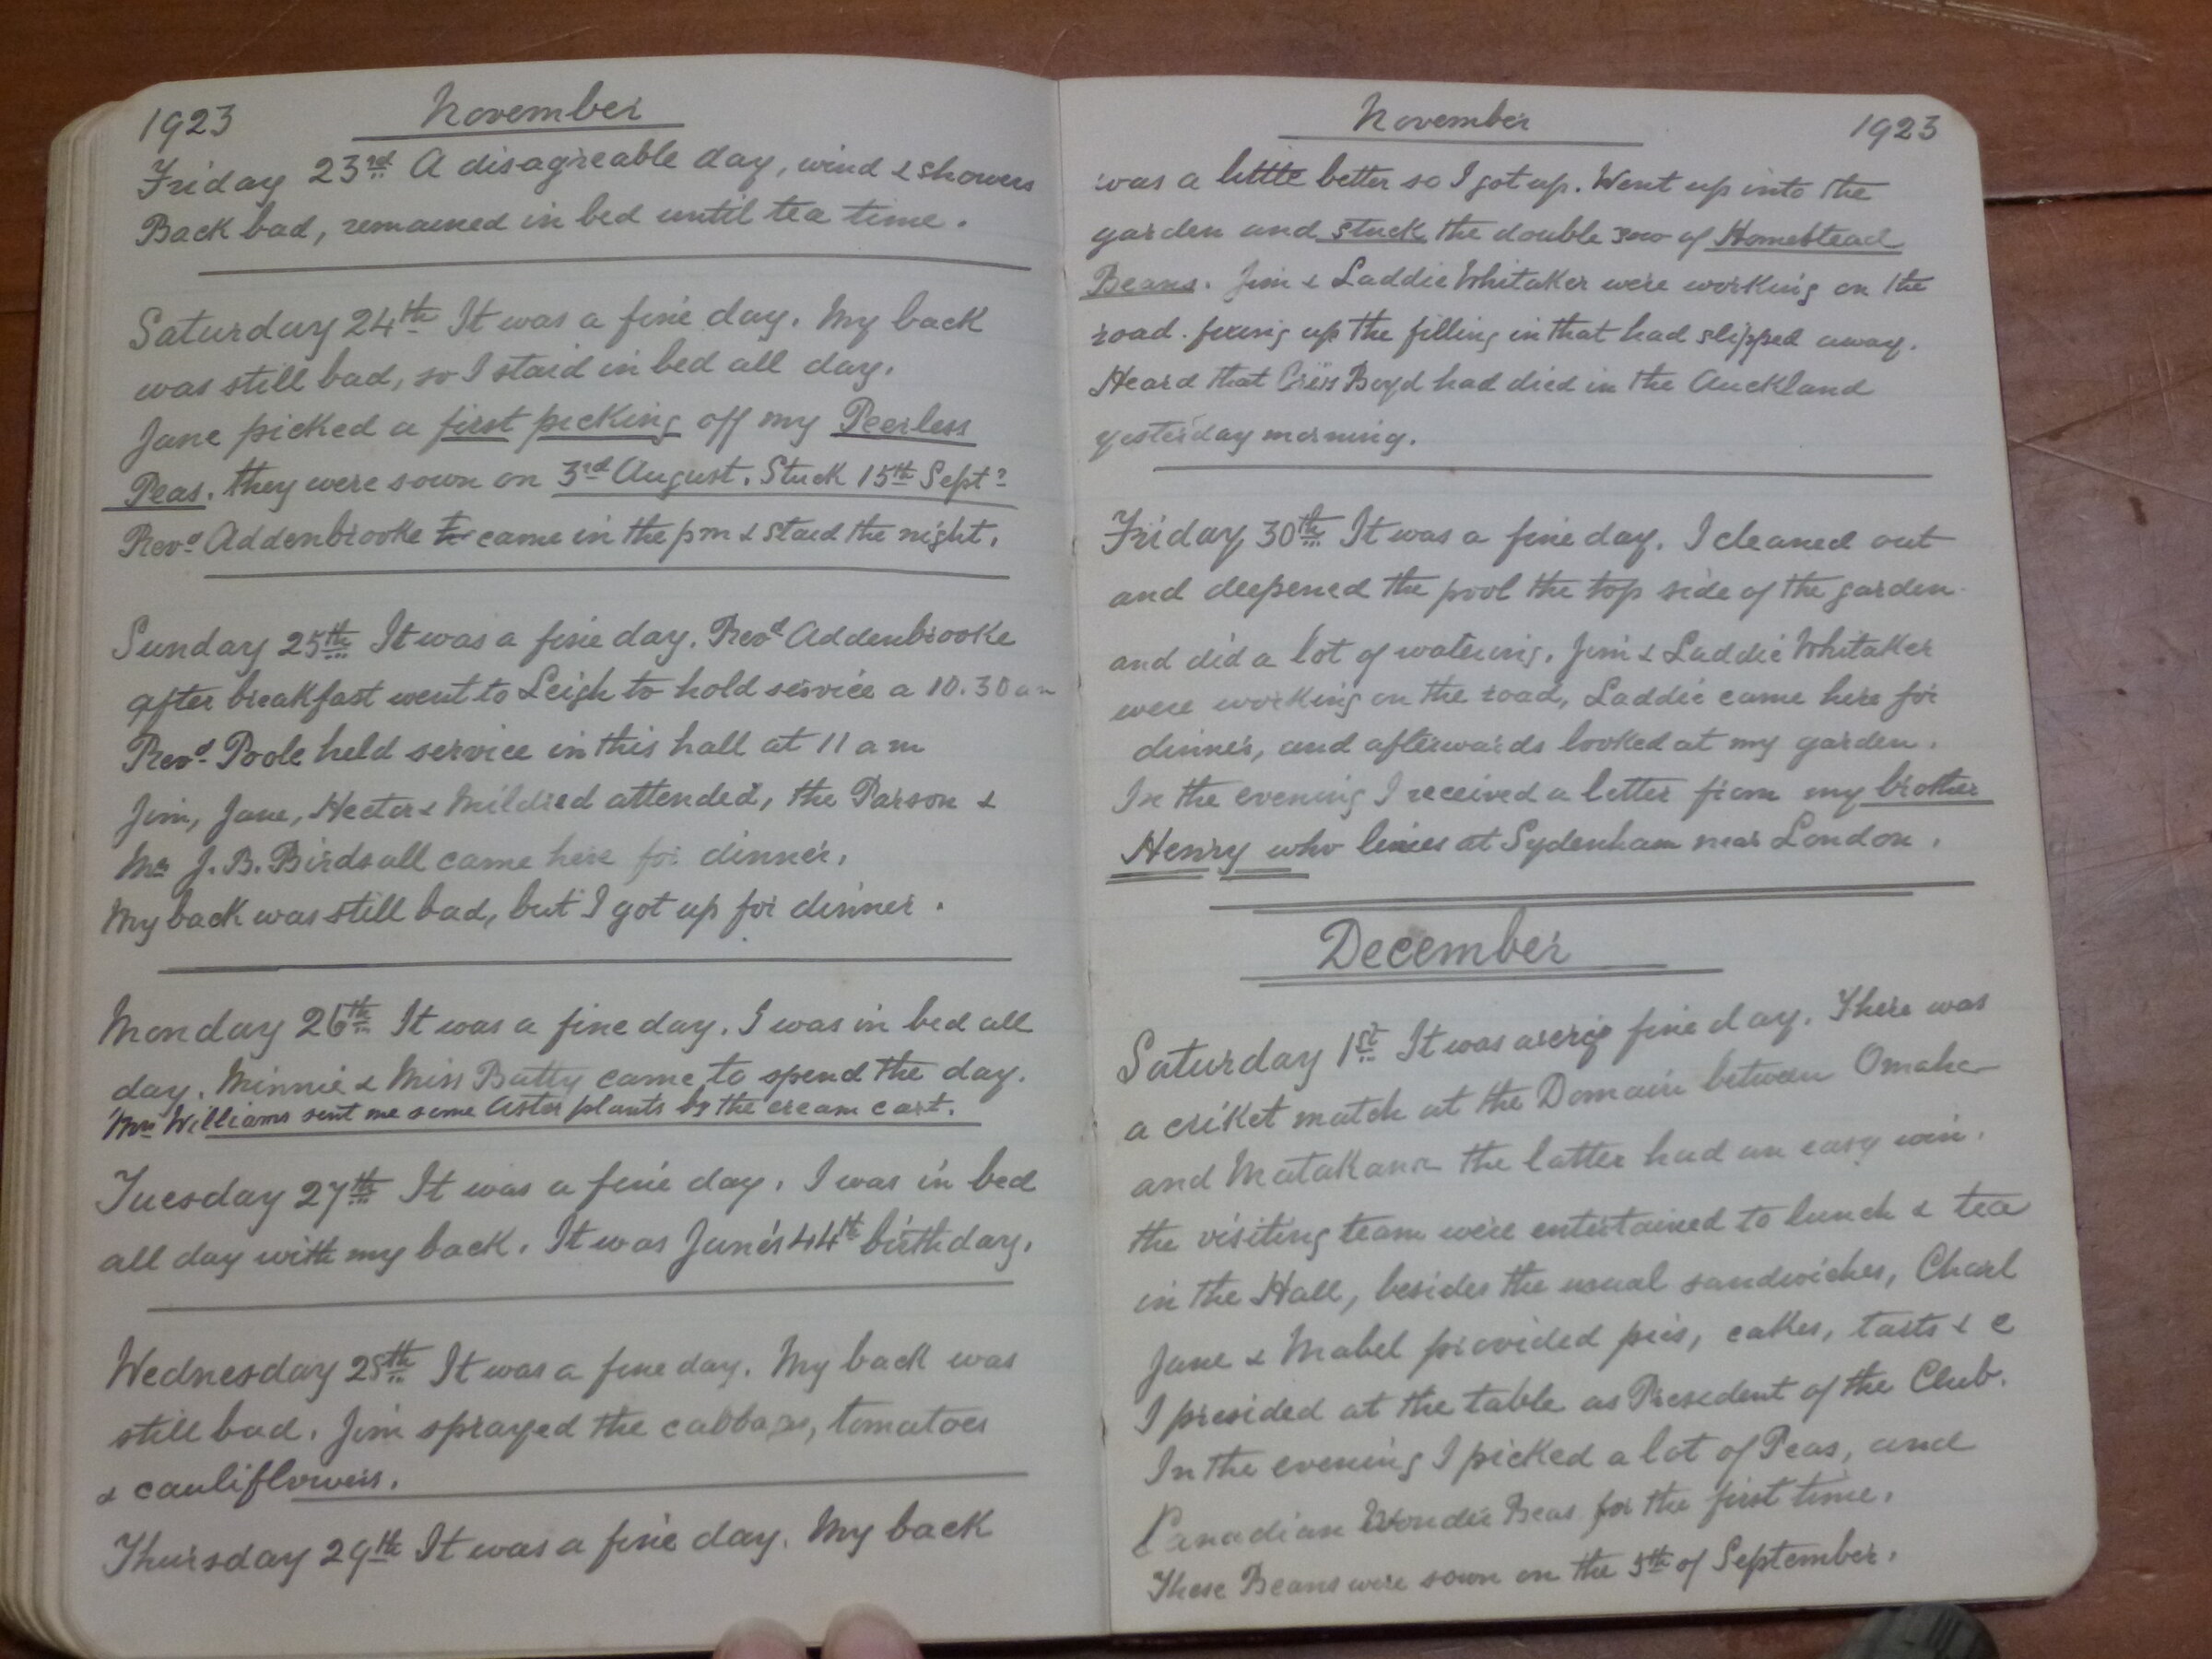 1923 November
Friday 23rd A disagreable day, wind & showers
Back bad, remained in bed until tea time.
Saturday 24th It was a fine day. My back
was still bad, so I staid in bed all day.
Jane picked a first picking off my Peerless
Peas. they were sown on 3rd August. Stuck 15th Sept?
Revd Addenbrooke came in the pm & staid the night.
Sunday 25th It was a fine day. Revd Addenbrooke
after breakfast went to Leigh to hold service a 10.30 am
Revd Poole held service in this hall at 11 am
Jim, Jane, Hector & Mildred attended, the Parson &
Mr J. B. Birdsall came here for dinner.
My back was still bad, but I got up for dinner.
Monday 26th It was a fine day. I was in bed all
day. Minnie & Miss Batty came to spend the day.
Mrs Williams sent me some Aster plants by the cream cart.
Tuesday 27th It was a fine day. I was in bed
all day with my back. It was Jane's 44th birthday.
Wednesday 28th It was a fine day. My back was
still bad. Jim sprayed the cabbage, tomatoes
& cauliflowers.
Thursday 29th It was a fine day. My back
November 1923
was a little better so I got up. Went up into the
garden and stuck the double row of Homestead
Beans. Jim & Laddie Whitaker were working on the
road. fixing up the filling in that had slipped away.
Heard that Boyd had died in the Auckland
yesterday morning.
Friday 30th It was a fine day. I cleaned out
and deepened the pool the top side of the garden
and did a lot of watering. Jim & Laddie Whitaker
were working on the road, Laddie came here for
dinner, and afterwards looked at my garden.
In the evening I received a letter from my brother
Henry who lives at Sydenham near London.
December
Saturday 1st It was a very fine day. There was
a criket match at the Domain between Omaha
and Matakana the latter had an easy win.
the visiting team were entertained to lunch & tea
in the Hall, besides the usual sandwiches, Charl
Jane & Mabel provided pies, cakes, tarts & c
I presided at the table as President of the Club.
In the evening I picked a lot of Peas, and
Canadian Wonder Beas for the first time.
These Beans were sown on the 5th of September.